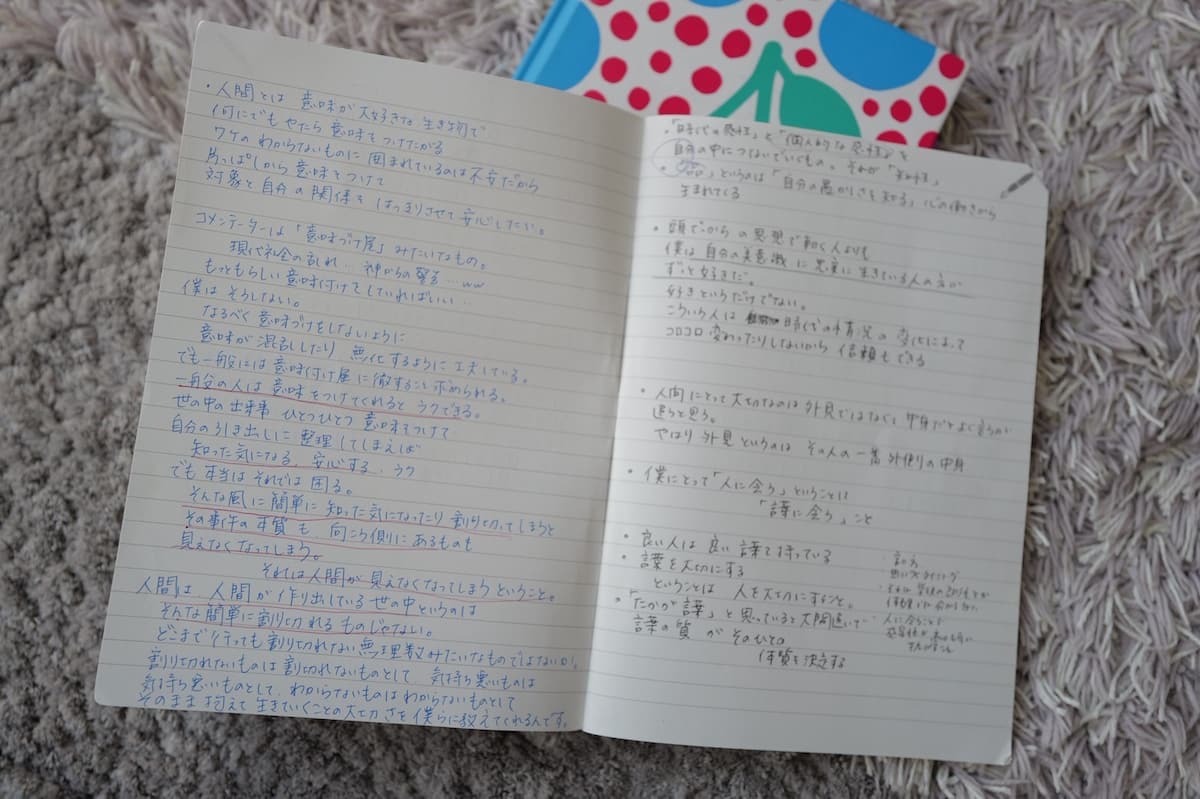 ・人間とは 意味が大好きな生き物で
何にでもやたら意味をつけたがる
ワケのわからないものに囲まれているのは不安だから
片っぱしから意味をつけて
対象と自分の関係をはっきりさせて安心したい。
コメンテーターは「意味づけ屋」みたいなもの。
現代社会の乱れ… 神からの警告…ww
もっともらしい意味付けをしていればいい…
僕はそうしない。
なるべく意味づけをしないように
意味が混乱したり 無化するように工夫している。
でも一般には意味付け屋に徹すること求められる。
一般の人は意味をつけてくれるとラクできる。
世の中の出来事 ひとつひとつ 意味をつけて
自分の引き出しに整理してしまえば
知った気になる、安心する、ラク
でも本当はそれでは困る。
そんな風に簡単に知った気になったり割り切ってしまうと
その事件の本質も、向こう側にあるものも
見えなくなってしまう。
それは人間が見えなくなってしまうということ。
人間は、人間が作り出している世の中というのは
そんな簡単に割り切れるものじゃない。
どこまで行っても割り切れない無理数みたいなものではないか。
割り切れないものは割切れないものとして 気持ち悪いものは
気持ち悪いものとして、わからないものはわからないものとして
そのまま抱えて生きていくことの大切さを僕らに教えてくれるんです。
・「時代の感性」と「個人的な感性」を
自分の中につないでいくもの。それが「知性」
・「品」というのは「自分の愚かしさを知る」心の働きから
生まれてくる
・頭でっかちの思想で動く人よりも
僕は自分の美意識に忠実に生きている人の方が
ずっと好きだ。
好きというだけでない。
こういう人は 時代の情況の変化によって
コロコロ変わったりしないから 信頼もできる
・人間にとって大切なのは外見ではなく、中身だとよく言うが
違うと思う。
やはり外見というのは その人の一番外側の中身
・僕にとって「人に会う」ということは
「言葉に会う」こと
・良い人は良い言葉を持っている
・言葉を大切にする
ということは 人を大切にすること。
・「たかが言葉」と思っていると大間違いで
言葉の質がそのひとの
体質を決定する
人に会うこと！